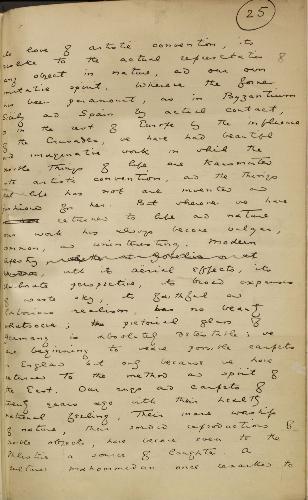 25
love of artistic convention, its
to the actual representation of
any object in nature, and our own
imitative spirit. Wherever the former
has been paramount, as in Byzantium
Sicily and Spain by actual contact,
in the rest of Europe by the influence
of the Crusades, we have had beautiful
and imaginative work in which the
visible things of life are transmuted
into artistic conventions, and the things
that life has not are invented and
fashioned for her. But wherever we have
returned to life and nature
our work has always become vulgar,
common, and uninteresting. Modern
tapestry
with its aerial effects, its
elaborate perspective, its broad expanses
of waste sky, its faithful and
laborious realism, has no beauty
whatsoever; the pictorial glass of
Germany is absolutely detestable; we
are beginning to weave possible carpets
in England but only because we have
returned to the method and spirit of
the East. Our rugs and carpets of
twenty years ago with their healthy
national feeling, their inane worship
of nature, their sordid reproductions of
visible objects, have become even to the
Philistine a source of laughter. A
cultured Mahommedan once remarked to